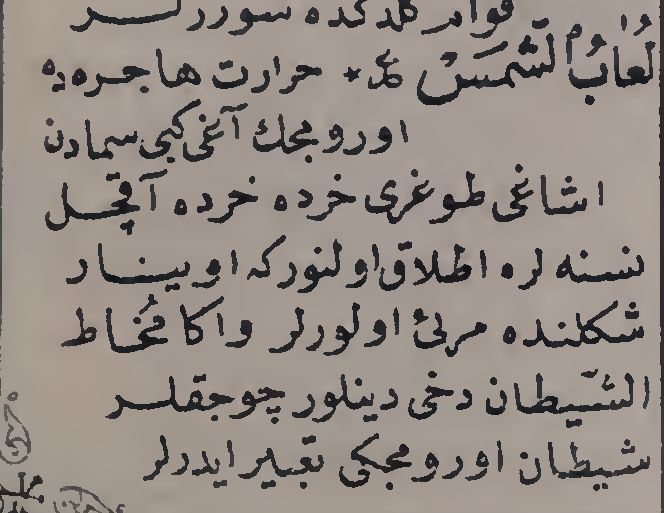 قوام كلدكده سوررلر
لُعَابُ الشَّمْسْ حرارت هاجره ده
اورومجك آغى كبى سمادن
اشاغى طوغرى خرده خرده آقچل
نسنه لره اطلاق اولنور كه اوينار
شكلنده مرئى اولورلر واكا مُخاط
الشّيطان دخى دينلور چوجقلر
شيطان اورومجكى تعبير ايدرلر